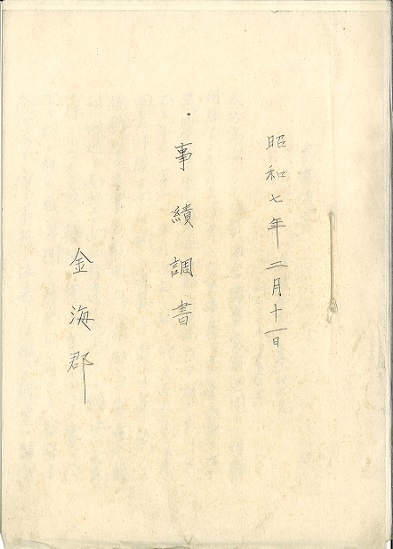 昭和七年二月十一日
事績調書
金海郡